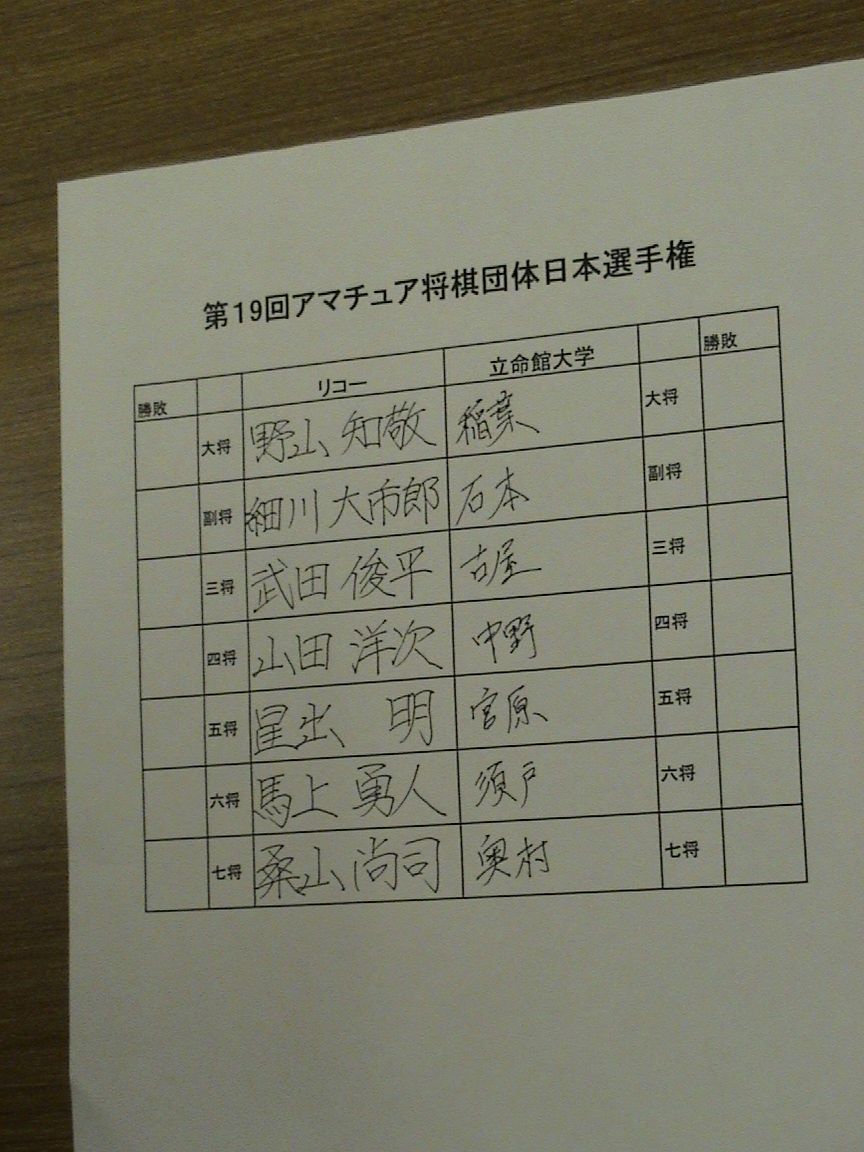 第19回アマチュア将棋団体日本選手権
勝敗 リコー 立命館大学 勝敗
大将 野山 知敬 稲葉 大将
副将 細川 大市郎 石本 副将
三将 武田 俊平 古屋 三将
四将 山田 洋次 中野 四将
五将 星出 明 宮原 五将
六将 馬上 勇人 須戸 六将
七将 桑山 尚司 奥村 七将